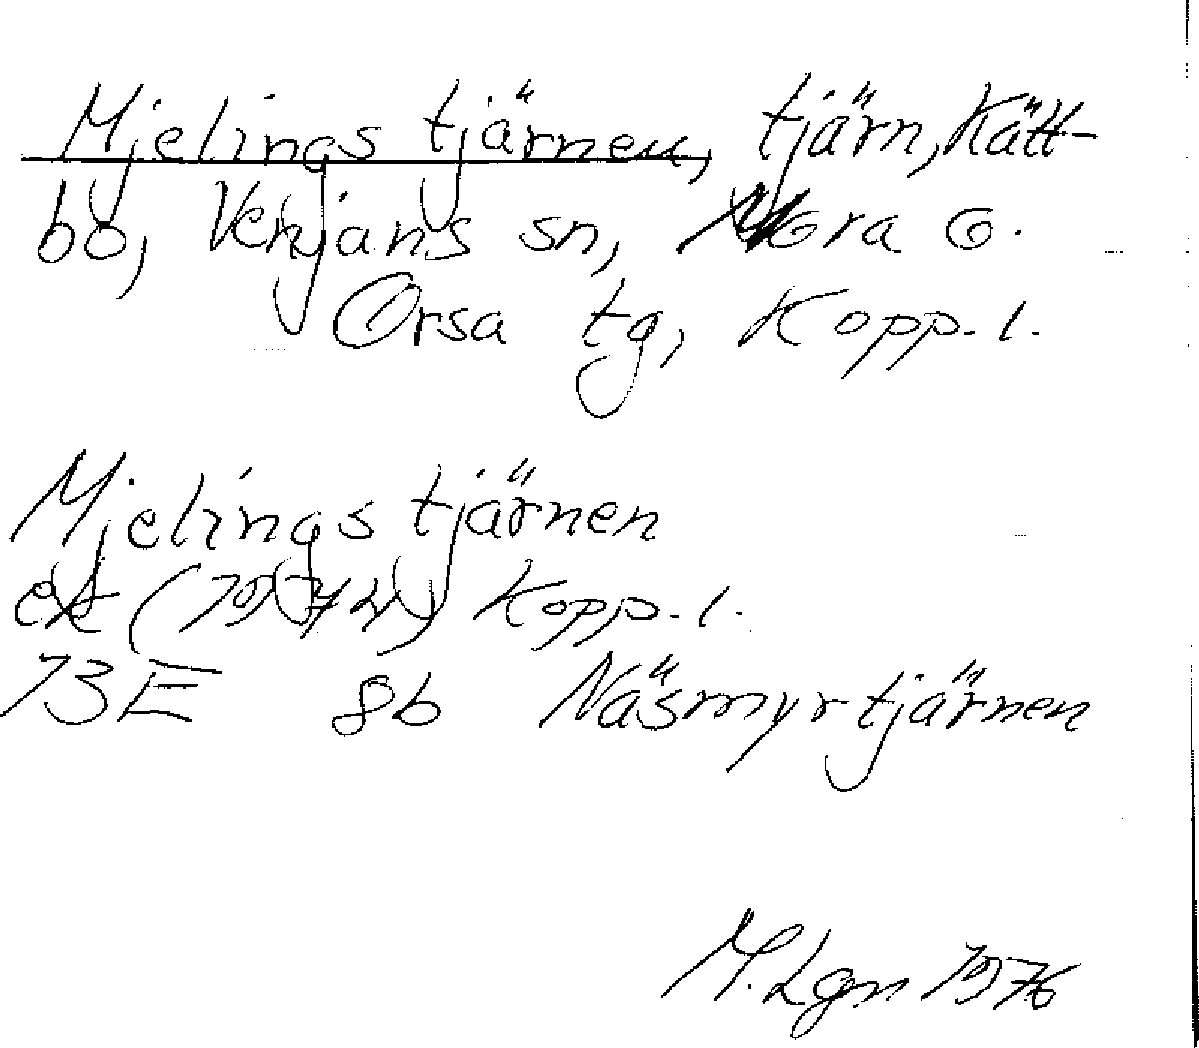 Mjelings tjärnen, tjärn, Kätt-
bo, Venjans sn, Mora o.
Orsa tg, Kopp. l.
Mjelings tjärnen
ek (1974) Kopp. l.
13E 8b Näsmyrtjärnen
M. Lgn 1976